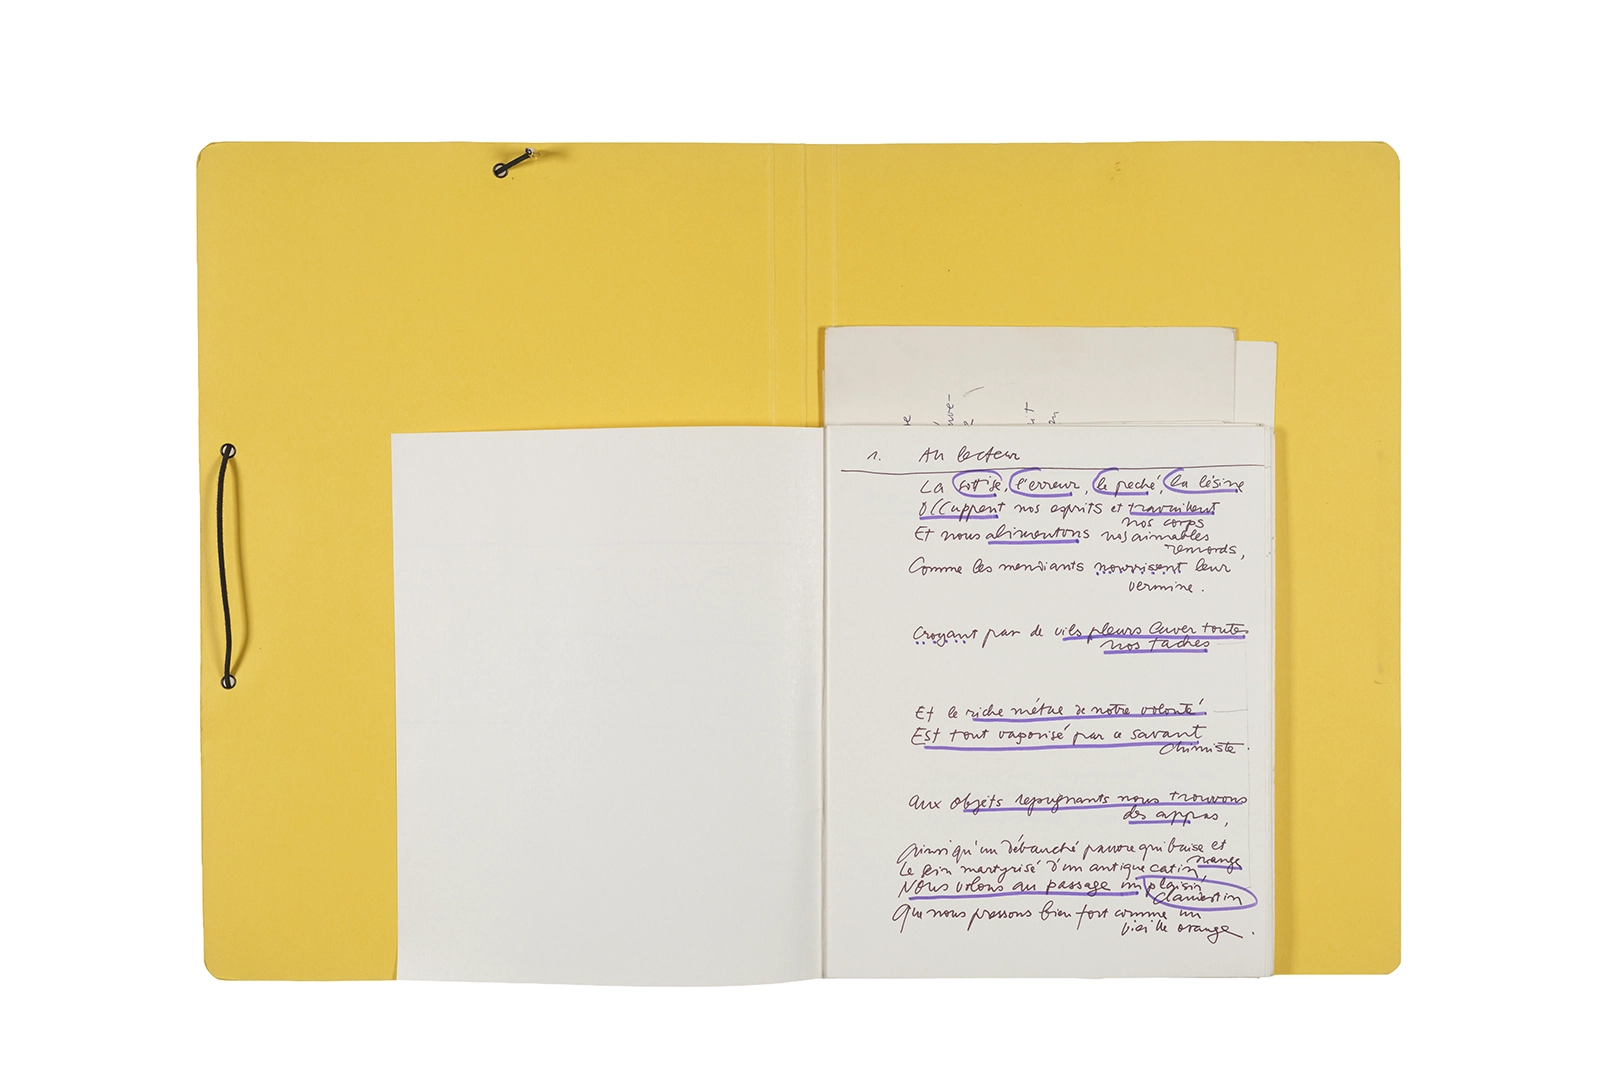 1. Au lecteur
La sottise, l'erreur, le peché, la lésine
Occuppent nos esprits et travaillent
nos corps
Et nous alimentons nos aimables
remords,
Comme les mendiants nourrissent leur
vermine.
Croyant par de vils pleurs laver toutes
nos taches
Et le riche métal de notre volonté
Est tout vaporisé par ce savant
chimiste.
Aux objets repugnants nous trouvons
des appas,
Ainsi qu'un débauché pauvre qui baise et
mange
Le sein martyrisé d'un antique catin,
Nous volons au passage un plaisir
clandestin
Que nous pressons bien fort comme un
vieille orange.